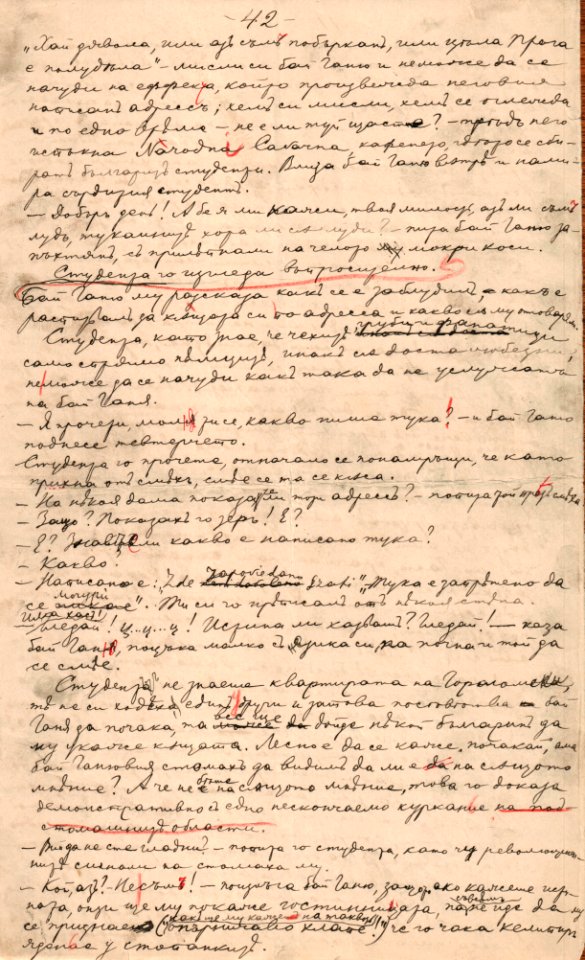 - 42 -
„Хай дявола, или азъ съмъ побърканъ, или цѣла Прага
е полудѣла“ - мисли си бай Ганю и неможе да се
начуди на ефекта, който произвежда неговия
написанъ адрессъ; хемъ си мисли, хемъ се оглежда
и по едно врѣме - не е ли туй щастие? - трѣдъ него
истъкна Národní Kavárna, кафенето, гдѣто се сби-
ратъ българскитѣ студенти. Влиза бай Ганю вътрѣ и нами-
ра сърдития студентъ.
- Добъръ день! А бе я ми кажи, твоя милость, азъ ли съмъ
лудъ, тукашнитѣ хора ли сѫ луди? - пита бай Ганю за-
пъхтянъ, съ прилѣпнали на челото му мокри коси.
Студента го изгледа въпросително.
Бай Ганю му расказа какъ се е заблудилъ, какъ е
распитвалъ за кѫщата си по адресса и какво сѫ му отговаряли
Студента, като знае, че чехитѣ груби и фанатици
само спрямо нѣмцитѣ, инакъ сѫ доста любезни,
неможе да се начуди какъ така да не услужатъ
на бай Ганя.
- Я прочети, моля ти се, какво пише тука? - и бай Ганю
поднесе тевтерчето.
Студента го прочете, отначало се понамръщи, че като
прихна отъ смѣхъ, смѣе се та се кѫса.
- На нѣкоя дама показа ли този адрессъ? - попита той прѣзъ смѣхъ
- Защо? Показахъ го зеръ! Е?
- Е? Знаешъ ли какво е написано тука?
- Какво.
- Написано е: „Zde zapovĕdeno srati“ „Тука е запрѣтено да
се“. Ти си го прѣписалъ отъ нѣкоя стѣна.
- Гледай! Ц...ц...ц! Истина ли казвашъ? Гледай! - каза
бай Ганю, поцъка малко съ язика си, па почна и той да
се смѣе.
Студента не знаеше квартирата на Горолом,
тѣ не си ходеха единъ други и затова посъвѣтва бай
Ганя да почака, па все ще дойде нѣкой българинъ да
му укаже кѫщата. Лесно е да се каже: почакай, ама
бай Ганювия стомахъ да видимъ дали е на сѫщото
мнѣние? А че не бѣше на сѫщото мнѣние, това го доказа
демонстративно съ едно нескончаемо куркание на под-
стомашнитѣ области.
- Вий да не сте гладни - попита го студента, като чу революционни-
нитѣ сигнали на стомаха му.
- Кой, азъ? - Не съмъ! - поизлъга бай Ганю, защо, ако кажеше истин-
ната, онзи ще му покаже гостинницата, па не иде да му
се признае (както ще му кажешъ на таквозъ „тьрничаво хлапе“), че го чака келепирь
ядене у стопанкитѣ.